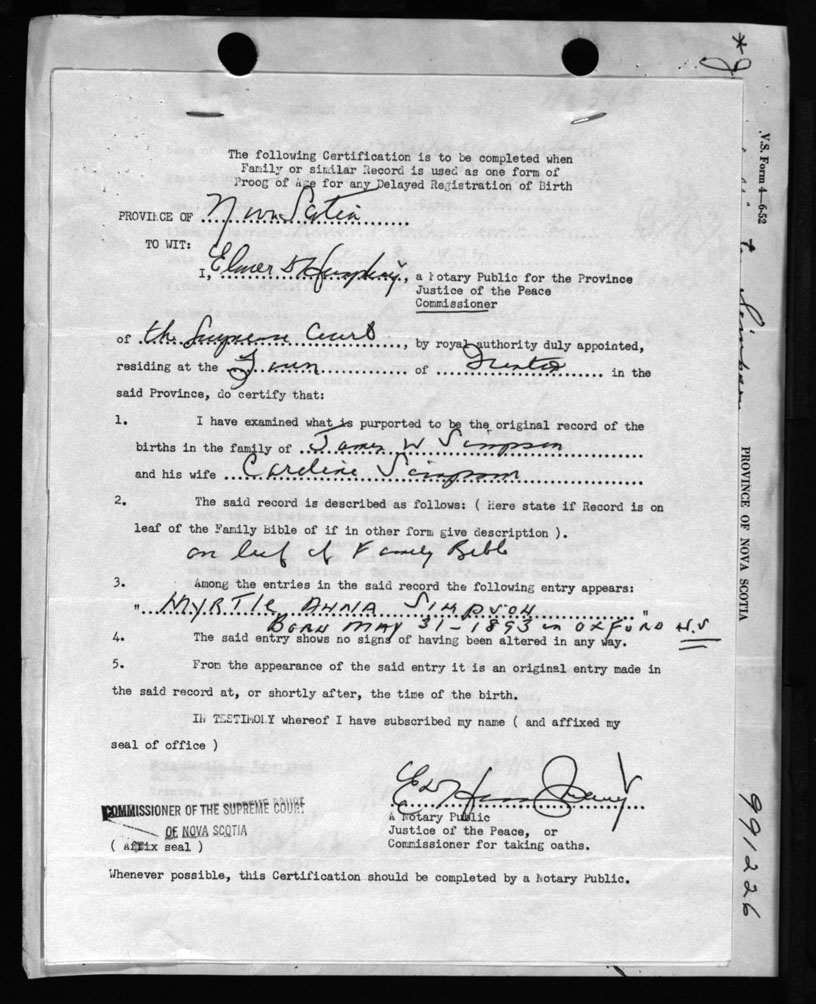 The following Certification is to be completed when
Family or similar Record is used as one form of
Proog of Age for any Delayed Registration of Birth
PROVINCE OF Nova Scotia
TO WIT:
I, Elmer D Humphrey, a Notary Public for the Province
Justice of the Peace
Commissioner
of the Supreme Court, by royal authority duly appointed,
residing at the Town of Trenton in the
said Province, do certify that:
1. I have examined what is purported to be the original record of the
births in the family of James W Simpson
and his wife Caroline Simpson
2. The said record is described as follows: ( Here state if Record is on
leaf of the Family Bible of if in other form give description ).
on leaf of Family Bible
3. Among the entries in the said record the following entry appears:
" MYRTlE ANNA SIMPSON "
BORN MAY 31-1893 in OXFORD N.S
4. The said entry shows no signs of having been altered in any way.
5. From the appearance of the said entry it is an original entry made in
the said record at, or shortly after, the time of the birth.
IN TESTIMONY whereof I have subscribed my name ( and affixed my
seal of office )
E D Humphrey
COMMISSIONER OF THE SUPREME COURT
OF NOVA SCOTIA
( Affix seal )
A Notary Public
Justice of the Peace, or
Commissioner for taking oaths.
Whenever possible, this Certification should be completed by a Notary Public.
V.S. Form 4—6-52
Simpson
PROVINCE OF NOVA SCOTIA
991226